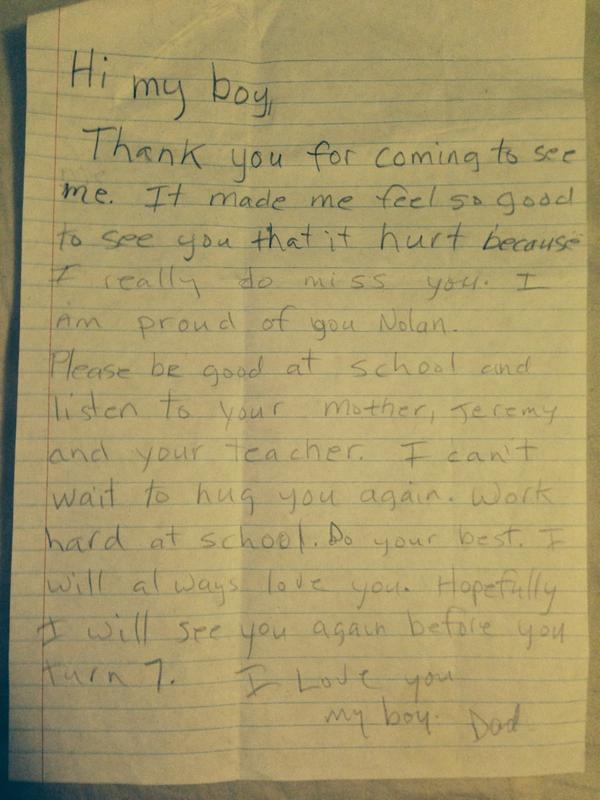 Hi my boy,
Thank you for coming to see
me. It made me feel so good
to see you that it hurt because
I really do miss you. I
Am proud of you Nolan.
Please be good at school and
listen to your mother, Jeremy
and your teacher. I can't
wait to hug you again. Work
hard at school. Do your best. I
will always love you. Hopefully
I will see you again before you
turn 7. I Love you
my boy. Dad